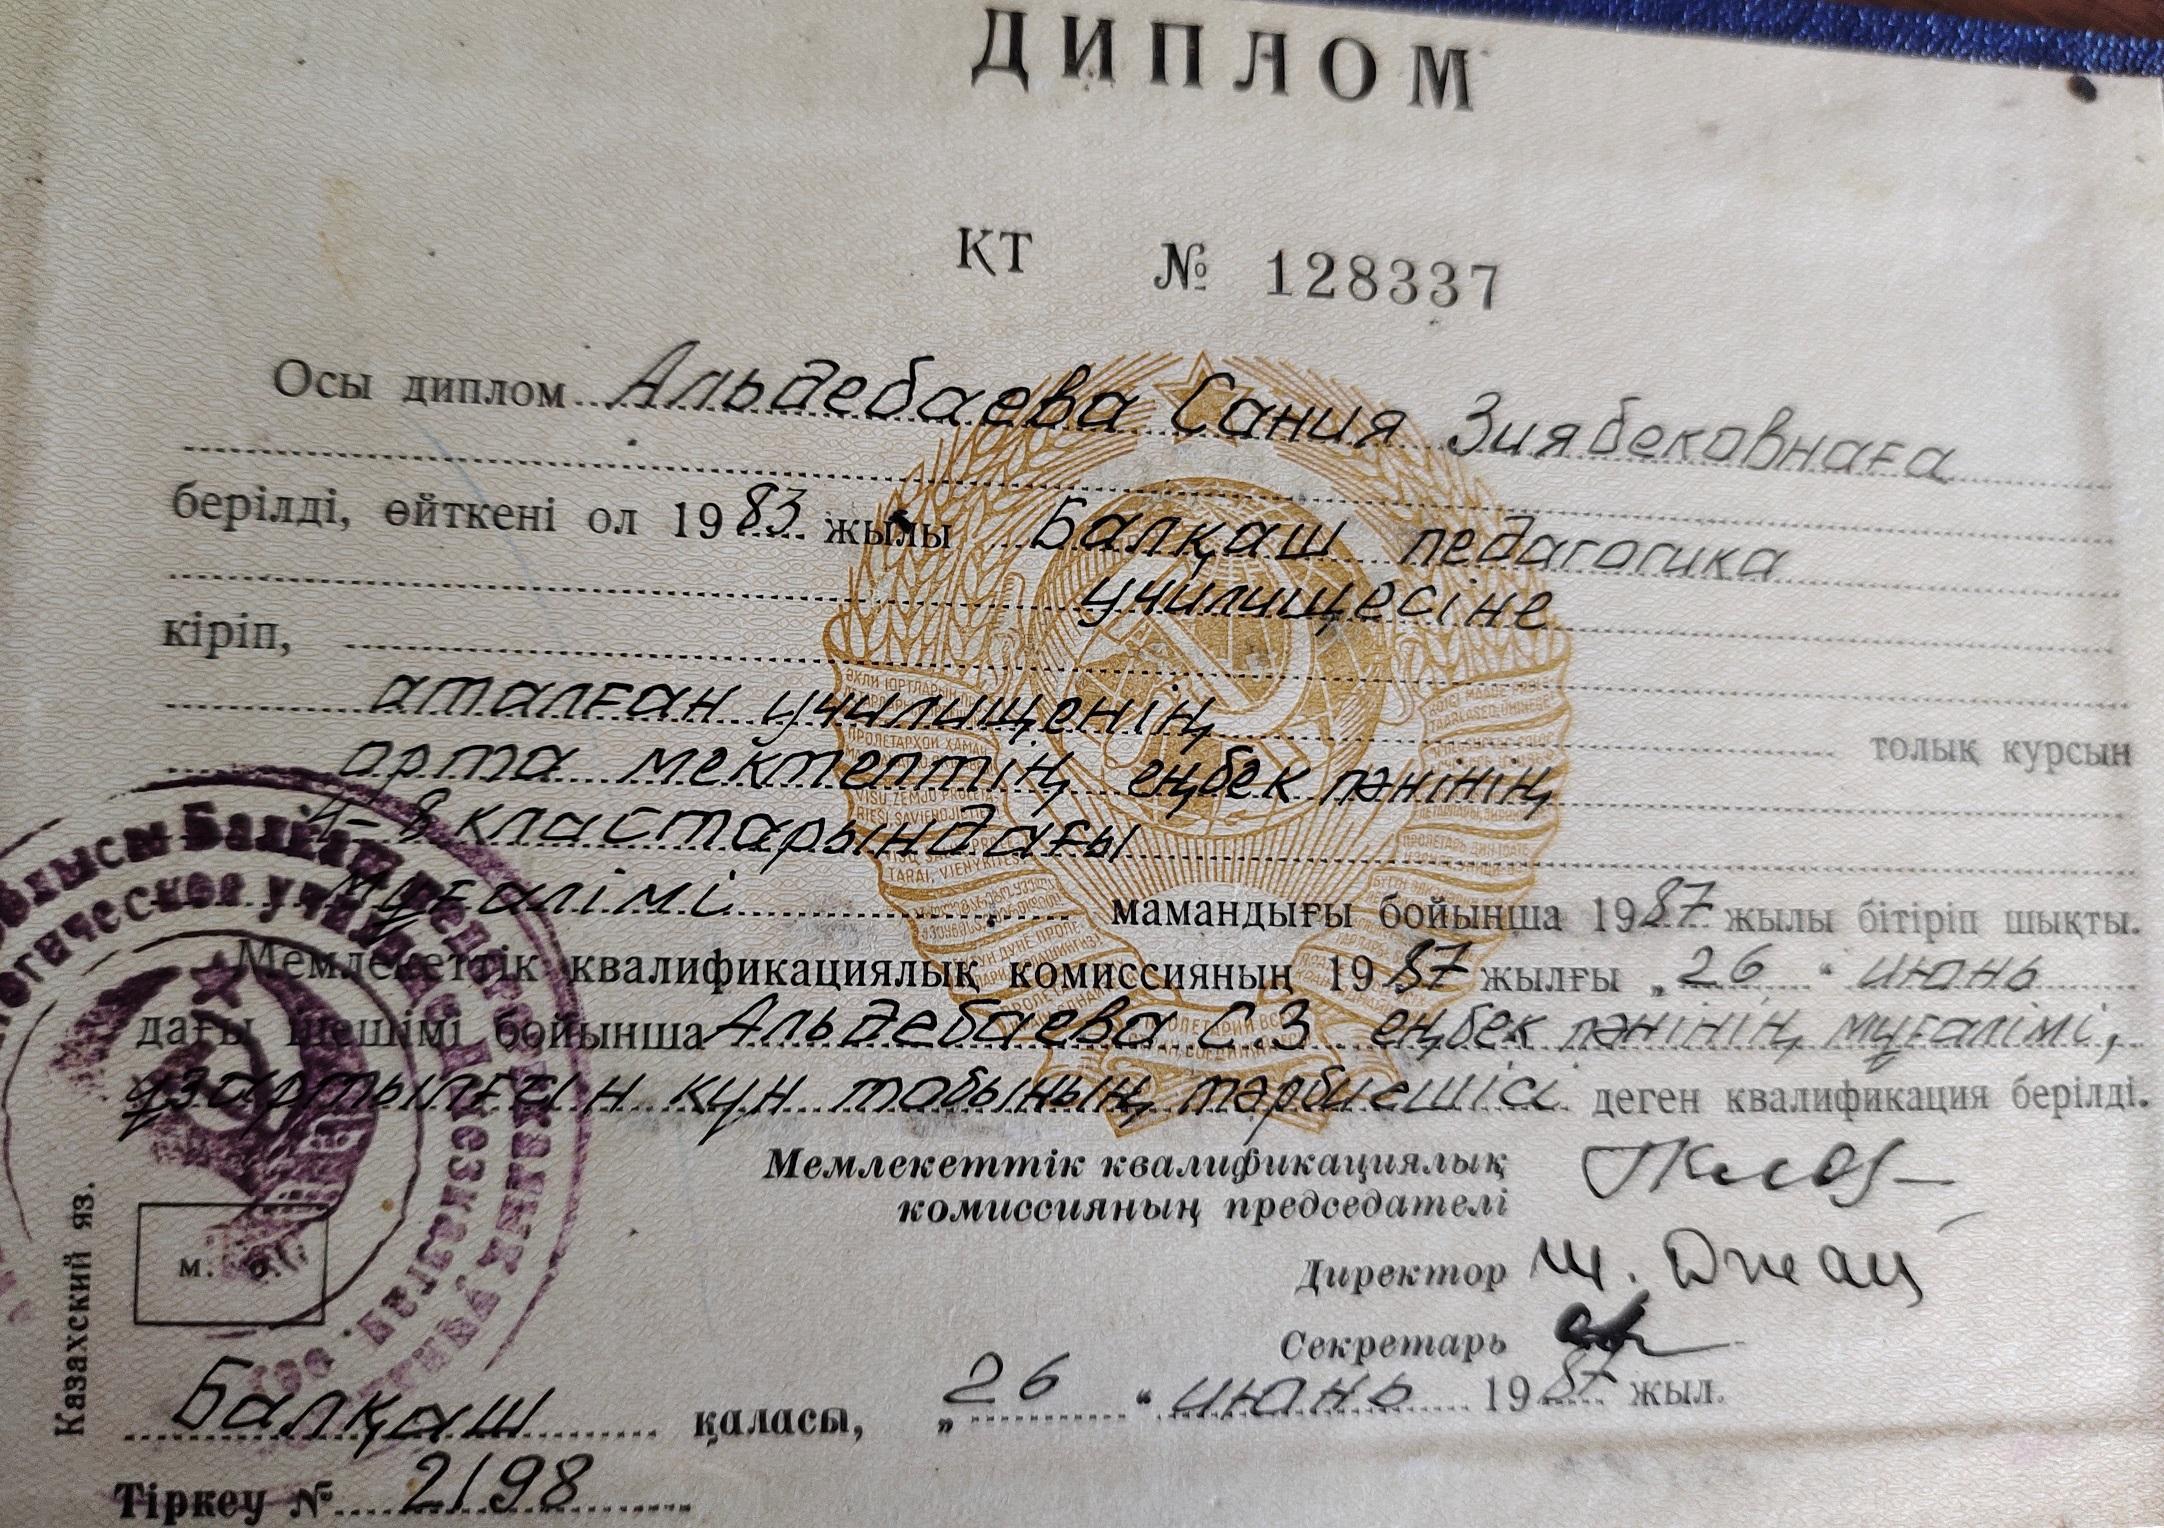 ДИПЛОМ
ҚТ № 128337
Осы диплом Альдебаева Сания Зиябековнаға
берілді, өйткені ол 1983 жылы Балқаш педагогика
училищесіне
кіріп,
аталған училищенің толық курсын
орта мектептің еңбек пәнінің
4-8 кластарындағы
мұғалімі мамандығы бойынша 1987 жылы бітіріп шықты.
Мемлекеттік квалификациялық комиссияның 1987 жылғы „26" июнь
дағы шешімі бойынша Альдебаева С.З еңбек пәнінің мұғалімі,
ұзартылған күн тобының тәрбиешісі деген квалификация берілді.
Мемлекеттік квалификациялық
комиссияның председателі
Директор
Секретарь
Казахский яз.
м. о.
Балқаш қаласы, „26" июнь 1987 жыл.
Тіркеу № 2198